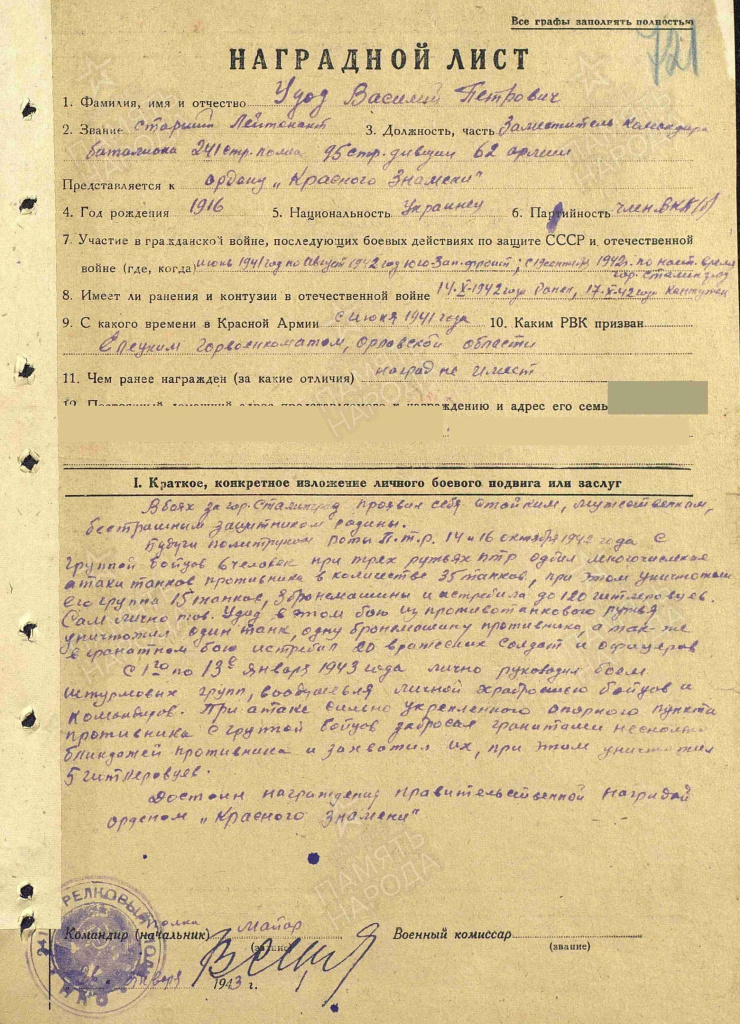 Все графы заполнять полностью
721
НАГРАДНОЙ ЛИСТ
1. Фамилия, имя и отчество Удод Василий Петрович
2. Звание старший Лейтенант 3. Должность, часть Заместитель командира
баталиона 241 стр. полка 95 стр. дивизии 62 армии
Представляется к ордену „Красного Знамени"
4. Год рождения 1916 5. Национальность Украинец 6. Партийность член ВКП(б)
7. Участие в гражданской войне, последующих боевых действиях по защите СССР и отечественной
войне (где, когда) июнь 1941 год по Август 1942 год Юго-Зап. фронт; с 19 сентябр. 1942г. по наст. время
гор. Сталинград
8. Имеет ли ранения и контузии в отечественной войне 14-X-1942 года Ранен, 17-X-42 года Контужен
9. С какого времени в Красной Армии с июня 1941 года 10. Каким РВК призван
Елецким горвоенкоматом, Орловской области
11. Чем ранее награжден (за какие отличия) наград не имеет
12. Постоянный домашний адрес представляемого к награждению и адрес его семь
I. Краткое, конкретное изложение личного боевого подвига или заслуг
В боях за гор. Сталинград проявил себя стойким, мужественным,
бесстрашным защитником родины.
Будучи политруком роты П.т.р. 14 и 16 октября 1942 года с
группой бойцов 8 человек при трех ружьях ПТР отбил многочисленные
атаки танков противника в количестве 35 танков, при этом уничтожила
его группа 15 танков, 3 бронемашины и истребила до 120 гитлеровцев.
Сам лично тов. Удод в этом бою из противотанкового ружья
уничтожил один танк, одну бронемашину противника, а так-же
в гранатном бою истребил 20 вражеских солдат и офицеров
С 1го по 13е января 1943 года лично руководил боем
штурмовых групп, воодушевляя личной храбростью бойцов и
командиров. При атаке сильно укрепленного опорного пункта
противника с группой бойцов забросал гранатами несколько
блиндажей противника и захватил их, при этом уничтожил
5 гитлеровцев.
Достоин награждения правительственной наградой
орденом „Красного Знамени"
полка Майор
Командир (начальник) Военный комиссар
(звание) (звание)
26 января 1943 г.
ПАМЯТЬ НАРОДА